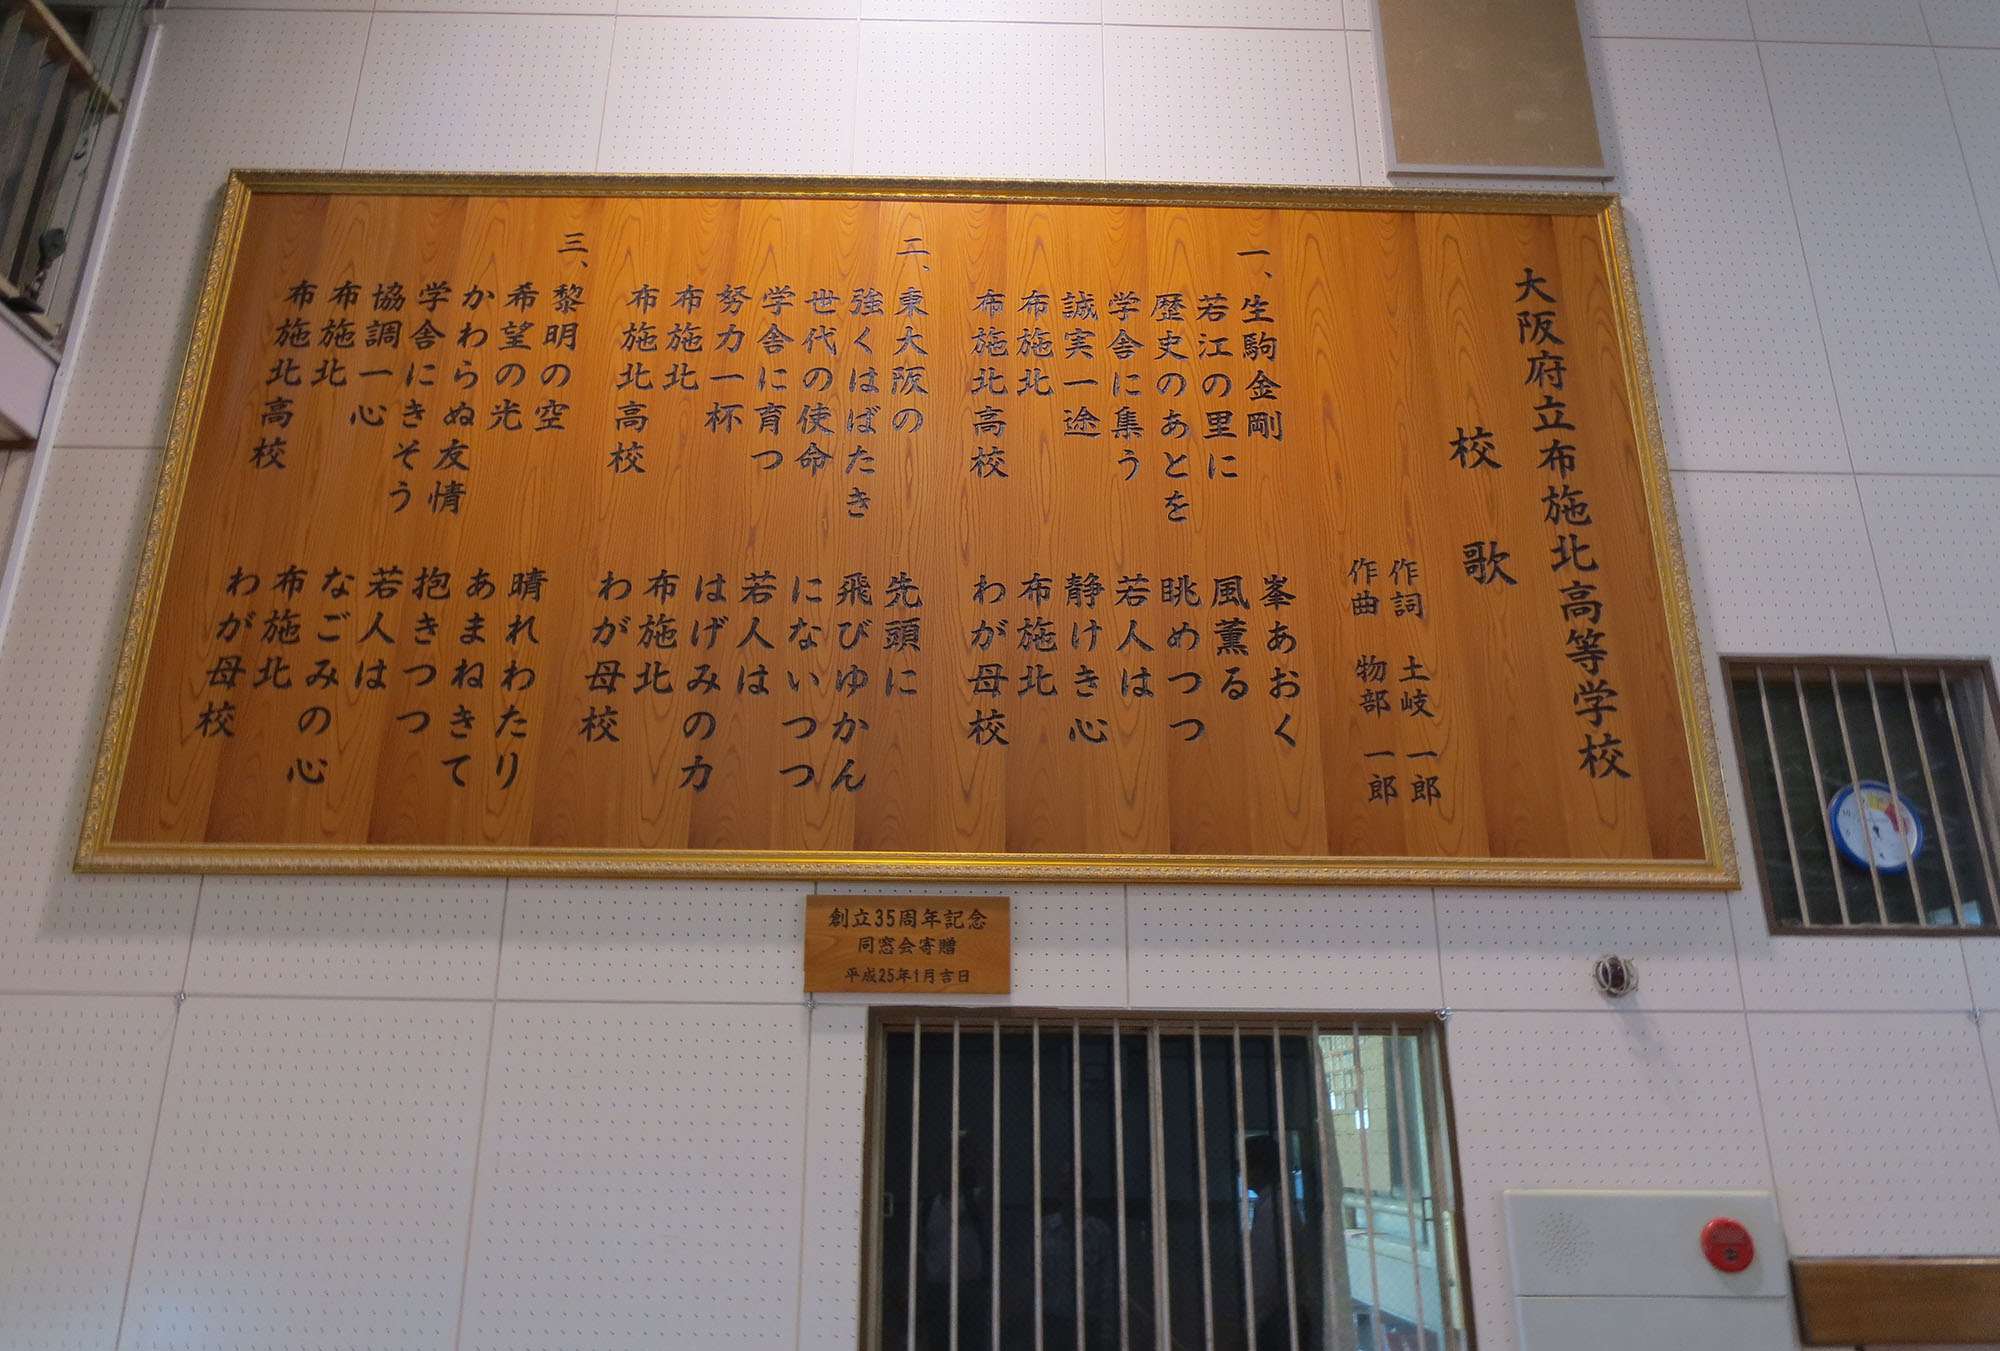 大阪府立布施北高等学校
校歌
作詞 土岐 一郎
作曲 物部 一郎
一、生駒金剛 峯あおく
若江の里に 風薫る
歴史のあとを 眺めつつ
学舎に集う 若人は
誠実一途 静けき心
布施北 布施北
布施北高校 わが母校
二、東大阪の 先頭に
強くはばたき 飛びゆかん
世代の使命 にないつつ
学舎に育つ 若人は
努力一杯 はげみの力
布施北 布施北
布施北高校 わが母校
三、黎明の空 晴れわたり
希望の光 あまねきて
かわらぬ友情 抱きつつ
学舎にきそう 若人は
協調一心 なごみの心
布施北 布施北
布施北高校 わが母校
創立35周年記念
同窓会寄贈
平成25年1月吉日